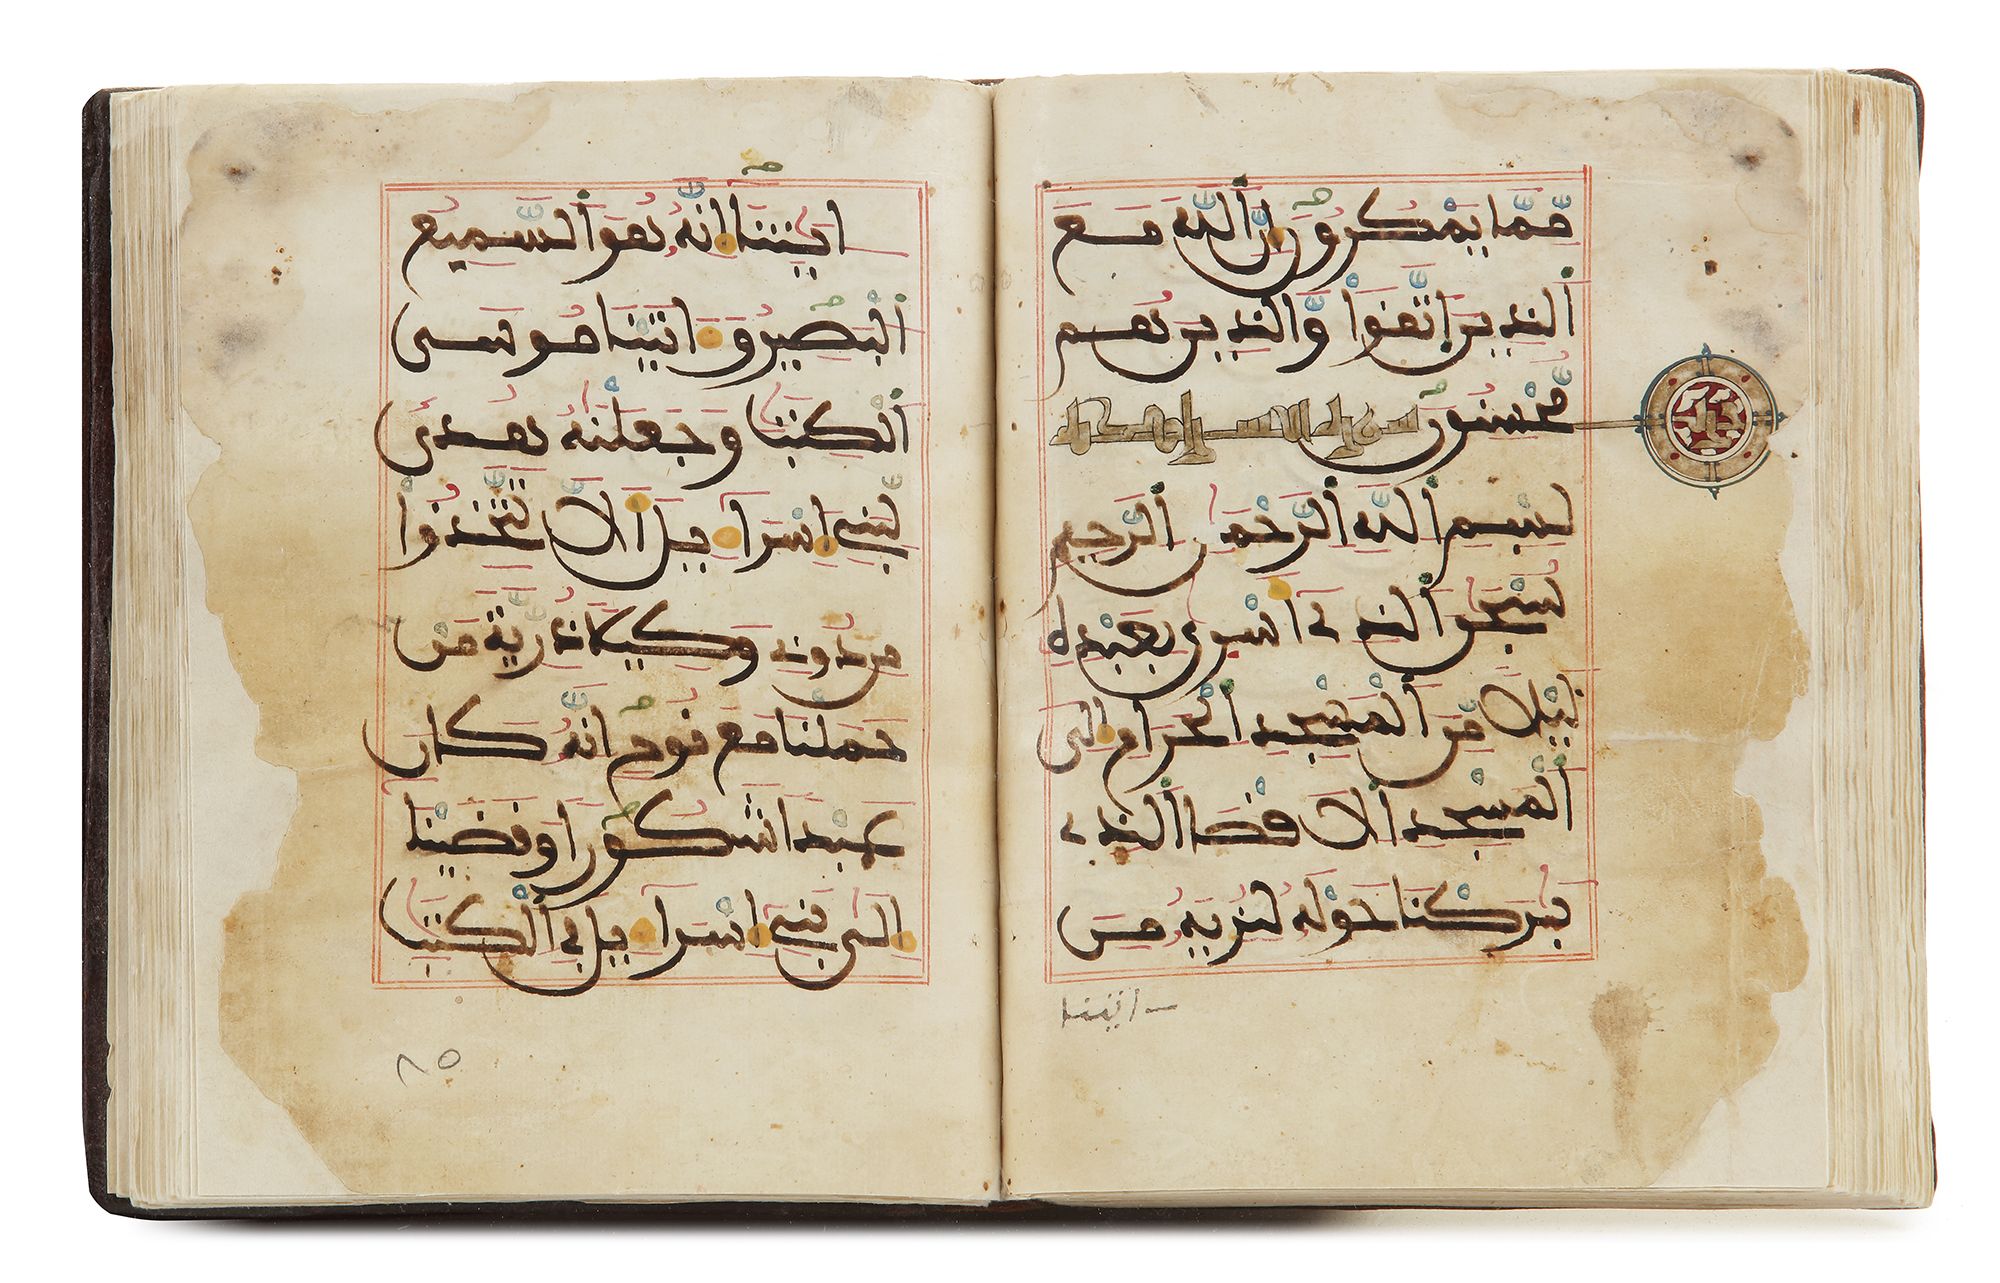 مِّمَّا يَمْكُرُونَ إِنَّ ٱللَّهَ مَعَ
ٱلذِينَ ٱتَّقَوا۟ وَّٱلذِينَ هُم
مُّحْسِنُونَ سورة الاسراء مكية
بِسْمِ ٱللَّهِ ٱلرَّحْمَٰنِ ٱلرَّحِيمِ
سُبْحَٰنَ ٱلذِے أَسْرَىٰ بِعَبْدِهِۦ
لَيْلًا مِّنَ ٱلْمَسْجِدِ ٱلْحَرَامِ إِلَى
ٱلْمَسْجِدِ ٱلَاقْصَا ٱلذِے
بَٰرَكْنَا حَوْلَهُۥ لِنُرِيَهُۥ مِنَ
ايتنا
ءَايَٰتِنَا إِنَّهُۥ هُوَ ٱلسَّمِيعُ
ٱلْبَصِيرُ وَءَاتَيْنَا مُوسَى
ٱلْكِتَٰبَ وَجَعَلْنَٰهُ هُدًى
لِّبَنِےٓ إِسْرَآءِيلَ أَلَّا تَتَّخِذُوا۟
مِن دُونِے وَكِيلًا ذُرِّيَّةَ مَنْ
حَمَلْنَا مَعَ نُوحٍ إِنَّهُۥ كَانَ
عَبْدًا شَكُورًا وَقَضَيْنَا
إِلَىٰ بَنِےٓ إِسْرَآءِيلَ فِے ٱلْكِتَٰبِ